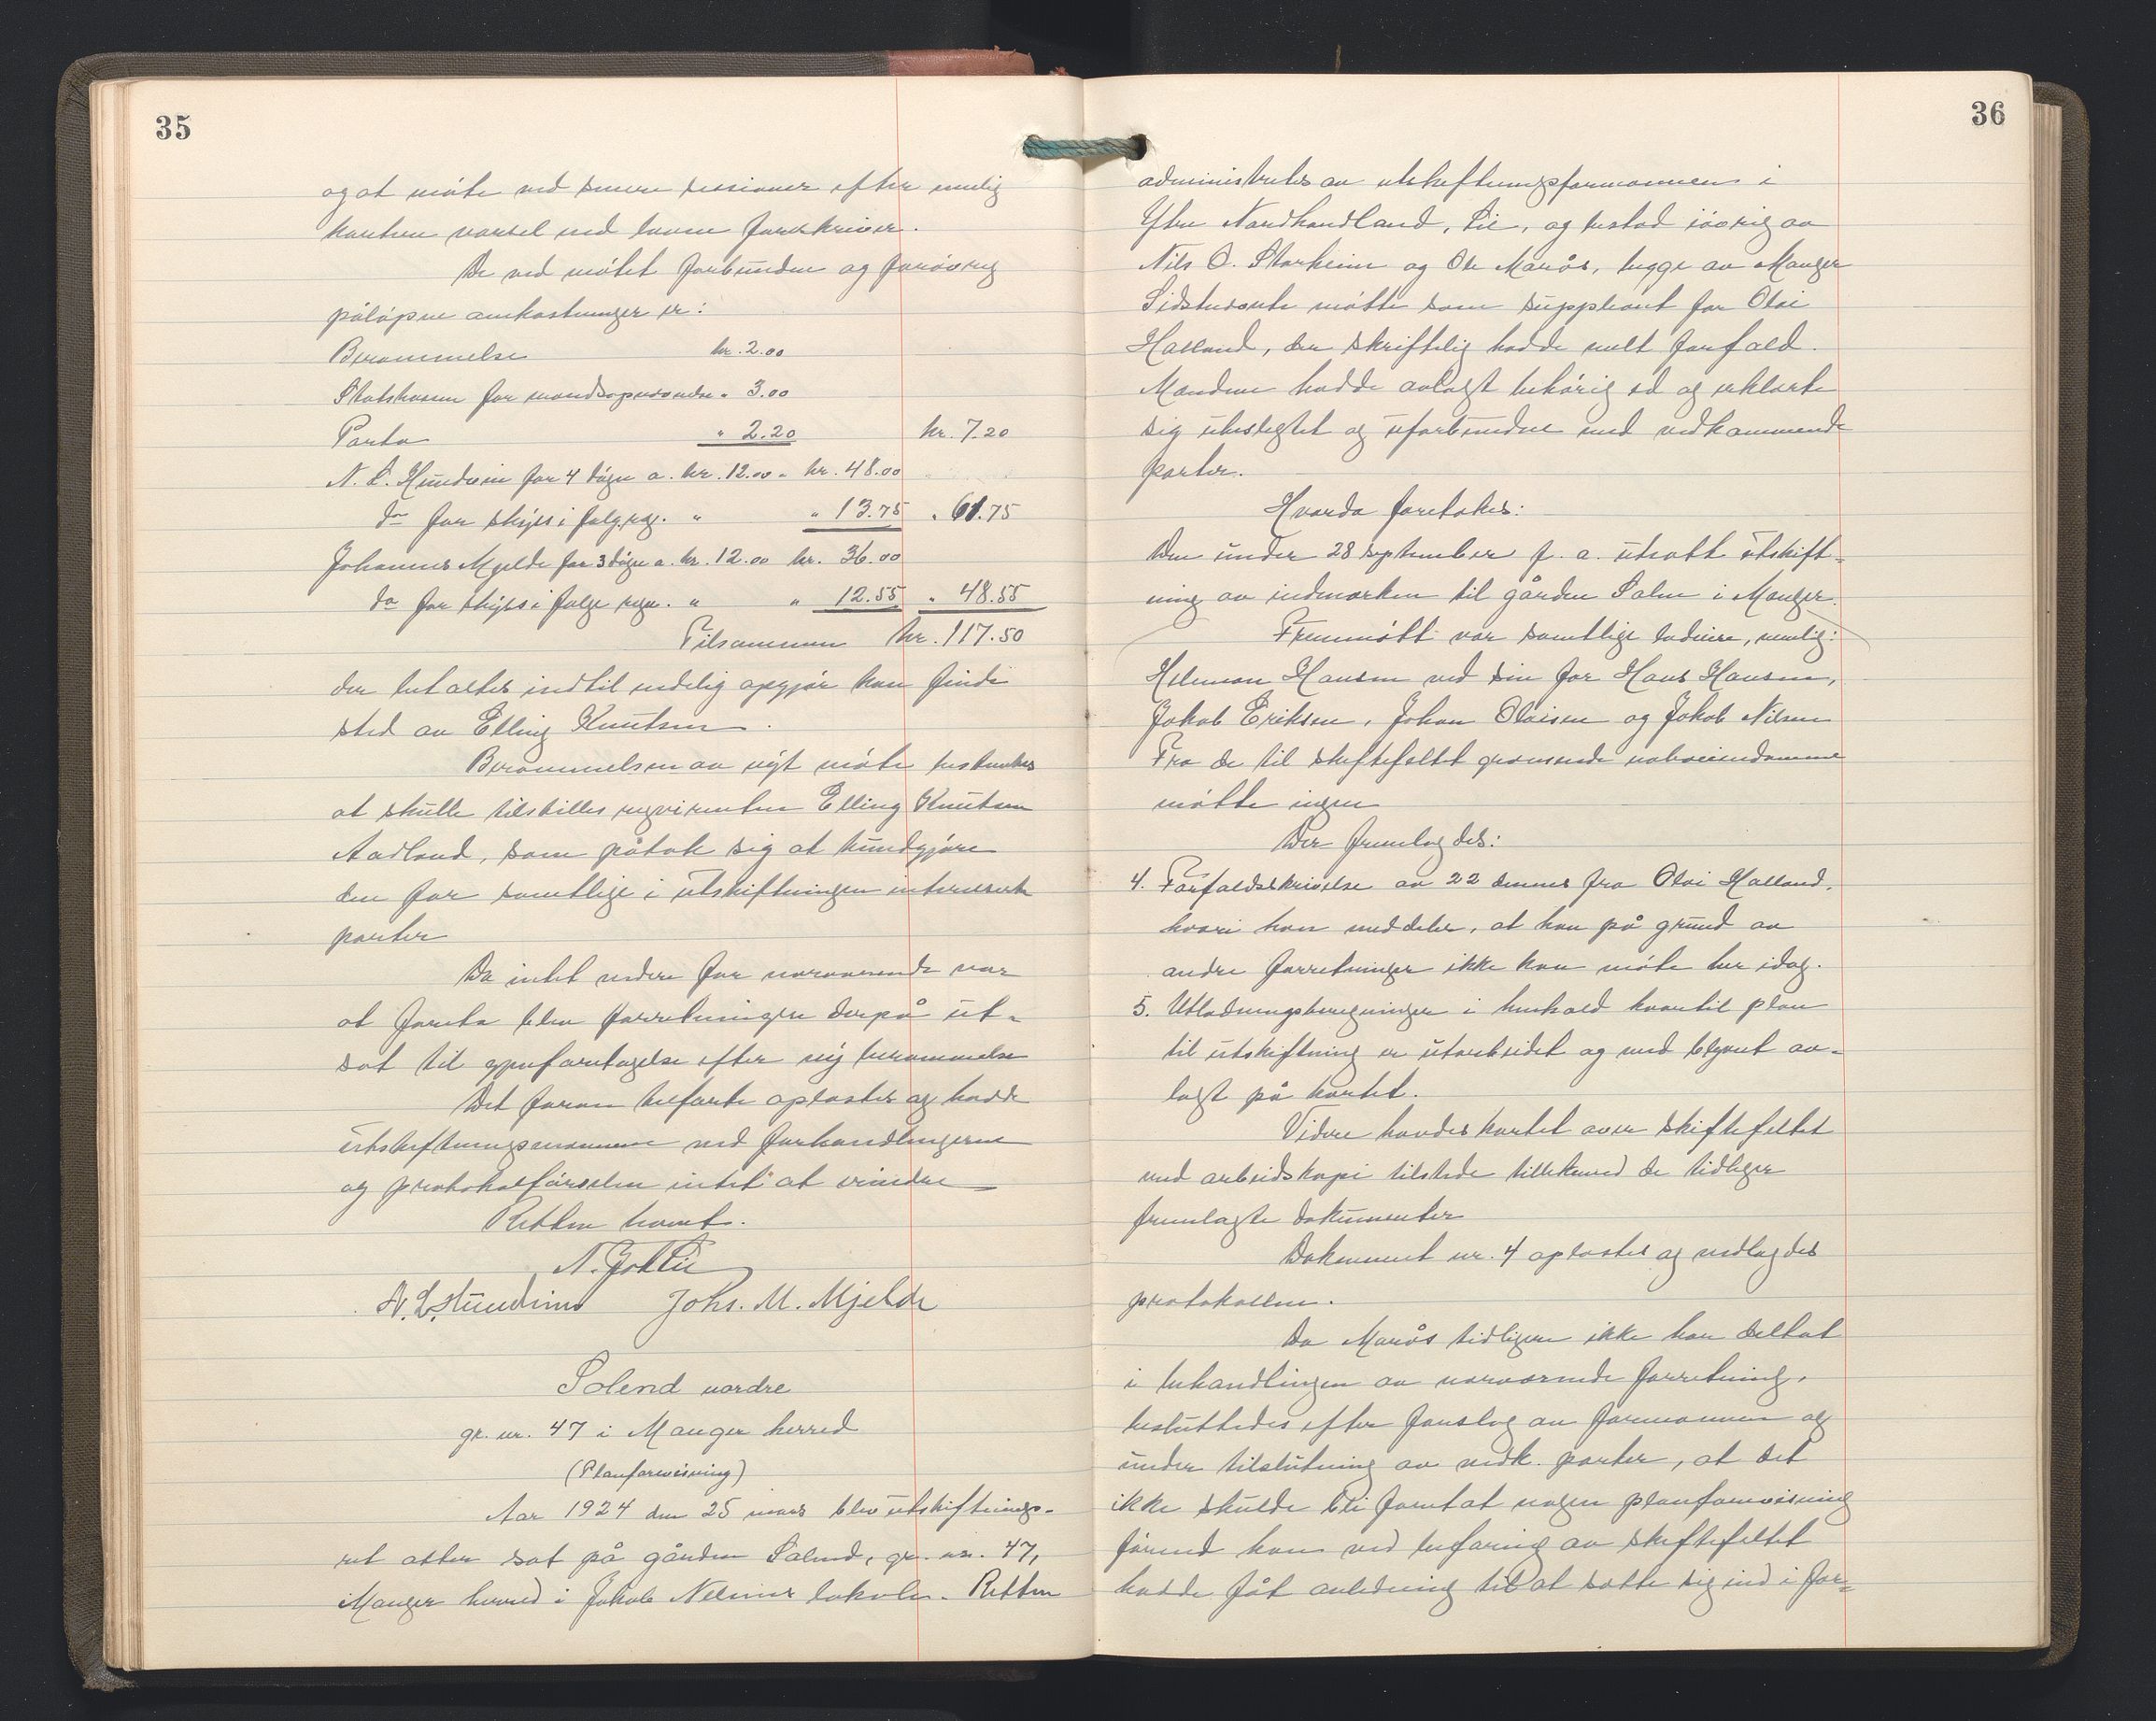 35
og at møte ved senere sessioner efter mulig
kortere varsel end loven foreskriver.
De ved møtet forbundne og forøvrig
påløpne omkostninger er:
Berammelse kr. 2.00
Statskassen for mandsopnævnelse " 3.00
Porto " 2.20 kr. 7.20
N. L. Hundvin for 4 døgn a. kr. 12.00 - kr. 48.00
do for skyss i følg. reg. " " 13.75 " 61.75
Johannes Mjelde for 3 døgn a. kr. 12.00 kr. 36.00
do for skyss i følge regn. " " 12.55 " 48.55
Tilsammen kr. 117.50
der utlægges indtil endelig opgjør kan finde
sted av Elling Knutsen.
Berammelsen av nyt møte besluttes
at skulle tilstilles rekvirenten Elling Knutsen
Aadland, som påtok sig at kundgjøre
den for samtlige i utskiftningen interesserte
parter
Da intet videre for nærværende var
at foreta blev forretningen derpå ut-
sat til gjenforetagelse efter ny berammelse
Det foran tilførte oplæstes og hadde
utskiftningsmænnene ved forhandlingerne
og protokolførselen intet at erindre
Retten hævet.
N. Joh Lie
N. L. Hundvin Johs. M. Mjelde
Solend nordre
gr. nr. 47 i Manger herred
(Planforevisning)
Aar 1924 den 25 mars blev utskiftnings-
ret atter sat på gården Solend, gr. nr. 47,
Manger herred i Jakob Nilsens lokale. Retten
36
administreres av utskiftningsformannen i
Ytre Nordhordland, Lie, og bestod iøvrig av
Nils O. Storheim og Ole Marøs, begge av Manger
Sidstnævnte møtte som suppleant for Olai
Halland, der skriftelig hadde meldt forfald.
Mændene hadde avlagt behørig ed og erklærte
sig ubeslegtet og uforbundne med vedkommende
parter.
Hvorda foretokes:
Den under 28 september f. a. utsatte utskift-
ning av indmarken til gården Solen i Manger.
Fremmøtt var samtlige lodeiere, nemlig:
Hilmon Hansen ved sin far Hans Hansen,
Jakob Eriksen, Johan Olaisen og Jakob Nilsen
Fra de til skiftefeltet grænsende naboeiendomme
møtte ingen
Der fremlagdes:
4. Forfaldsskrivelse av 22 dennes fra Olai Halland,
hvori han meddeler, at han på grund av
andre forretninger ikke kan møte her idag.
5. Utlodningsberegninger i henhold hvortil plan
til utskiftning er utarbeidet og med blyant av-
lagt på kartet.
Videre havdes kartet over skiftefeltet
med arbeidskopi tilstede tillikemed de tidligere
fremlagte dokumenter
Dokument nr. 4 oplæstes og vedlagdes
protokollen.
Da Marøs tidligere ikke har deltat
i behandlingen av nærværende forretning,
besluttedes efter forslag av formannen og
under tilslutning av vedk. parter, at det
ikke skulde bli foretat nogen planforevisning
førend han ved befaring av skiftefeltet
hadde fåt anledning til at sætte sig ind i for-